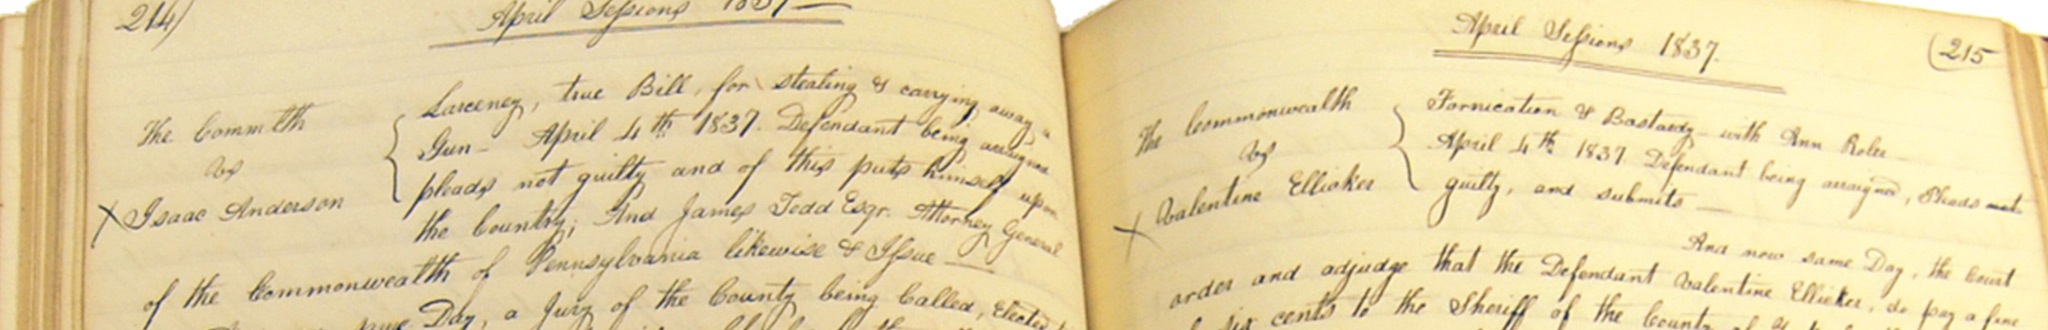 214)
April Sessions 1837
The Commlth
vs
X Isaac Anderson
Larceney, true Bill, for stealing & carrying away a
Gun - April 4th 1837. Defendant being arraigned
pleads not guilty and of this puts himself upon
the Country; And James Todd Esqr. Attorney General
of the Commonwealth of Pennsylvania likewise & Issue
same Day, a Jury of the County being Called, Elected
April Sessions 1837.
(215
The Commonwealth
vs
X Valentine Ellicker
Fornication & Bastardy - with Ann Roler
April 4th 1837. Defendant being arraigned, Pleads not
guilty, and submits
And now same Day, the Court
order and adjudge that the Defendant Valentine Ellicker, do pay a fine
six cents to the Sheriff of the County of